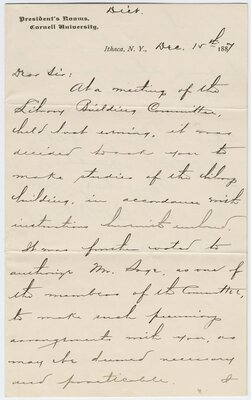 Dict.
President's Rooms,
Cornell University,
Ithaca, N. Y., Dec. 15th, 1887
Dear Sir:
At a meeting of the
Library Building Committee,
held last evening, it was
decided to ask you to
make studies of the library
building, in accordance with
instructions herewith enclosed.
It was further voted to
authorize Mr. Sage, as one of
the members of the Committee,
to make such pecuniary
arrangements with you, as
may be deemed necessary
and practicable. I